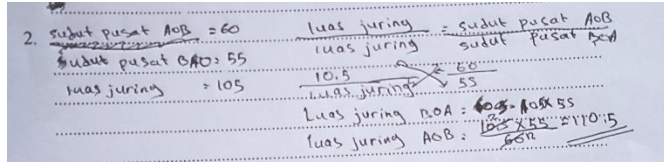 2. sudut pusat AOB = 60
sudut pusat BAO = 55
luas juring = 105
luas juring / luas juring = sudut pusat AOB / sudut pusat BOA
10.5 / Luas juring = 60 / 55
Luas juring BOA = 105 x 55
luas juring AOB : 105 x 55 / 60 = 110,5